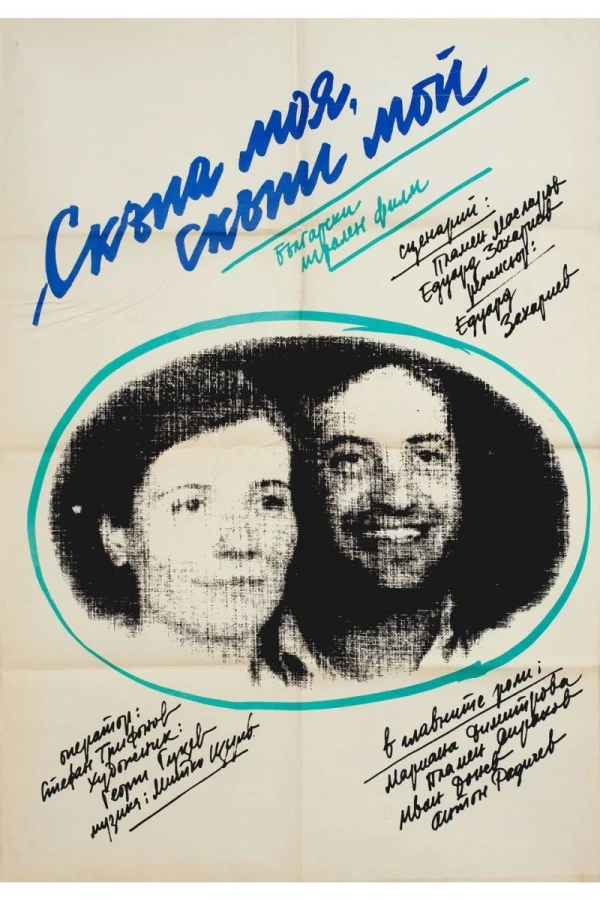 Скъпа моя,
скъпи мой
български
игрален филм
сценарий:
Пламен Масларов
Едуард Захариев
режисьор:
Едуард
Захариев
оператор:
Стефан Трифонов
художник:
Георги Гуцев
музика: Митко Щерев
в главните роли:
Мариана Димитрова
Пламен Сираков
Иван Донев
Антон Радичев